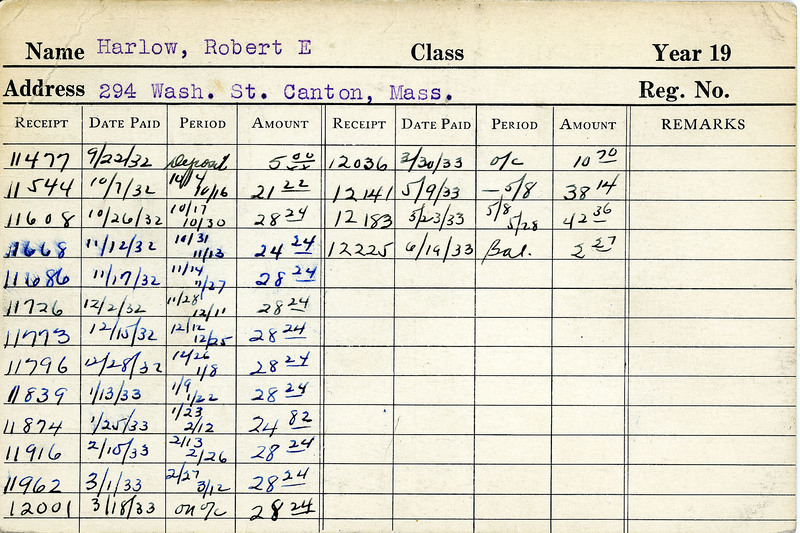 Name Harlow, Robert E Class Year 19
Address 294 Wash. St. Canton, Mass. Reg. No.
RECEIPT DATE PAID PERIOD AMOUNT RECEIPT DATE PAID PERIOD AMOUNT REMARKS
11477 9/22/32 Deposit 5 00 12036 3/30/33 o/c 10 70
11544 10/7/32 10/4 10/16 21 22 12141 5/9/33 — 5/8 38 14
11608 10/26/32 10/17 10/30 28 24 12183 5/23/33 5/8 5/28 42 36
11668 11/12/32 10/31 11/13 24 24 12225 6/19/33 Bal. 2 27
11686 11/17/32 11/14 11/27 28 24
11726 12/2/32 11/28 12/11 28 24
11773 12/15/32 12/12 12/25 28 24
11796 12/28/32 12/26 1/8 28 24
11839 1/13/33 1/9 1/22 28 24
11874 1/25/33 1/23 2/12 24 82
11916 2/15/33 2/13 2/26 28 24
11962 3/1/33 2/27 3/12 28 24
12001 3/18/33 on o/c 28 24